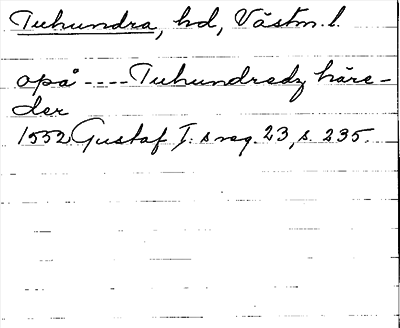 Tuhundra, hd, Västm. l.
opå ---- Tuhundredz häre-
der
1552 Gustaf I:s reg. 23, s. 235.